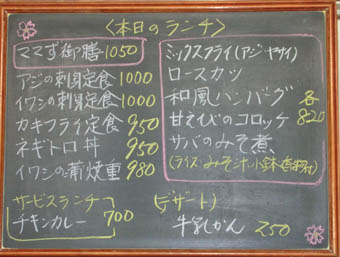 〈本日のランチ〉
ママず御膳 1050
アジの刺身定食 1000
イワシの刺身定食 1000
カキフライ定食 950
ネギトロ丼 950
イワシの蒲焼重 980
サービスランチ
チキンカレー 700
ミックスフライ(アジ・ヤサイ)
ロースカツ
和風ハンバーグ 各
甘えびのコロッケ 820
サバのみそ煮
(ライス・みそ汁・小鉢・香物付)
(デザート)
牛乳かん 250